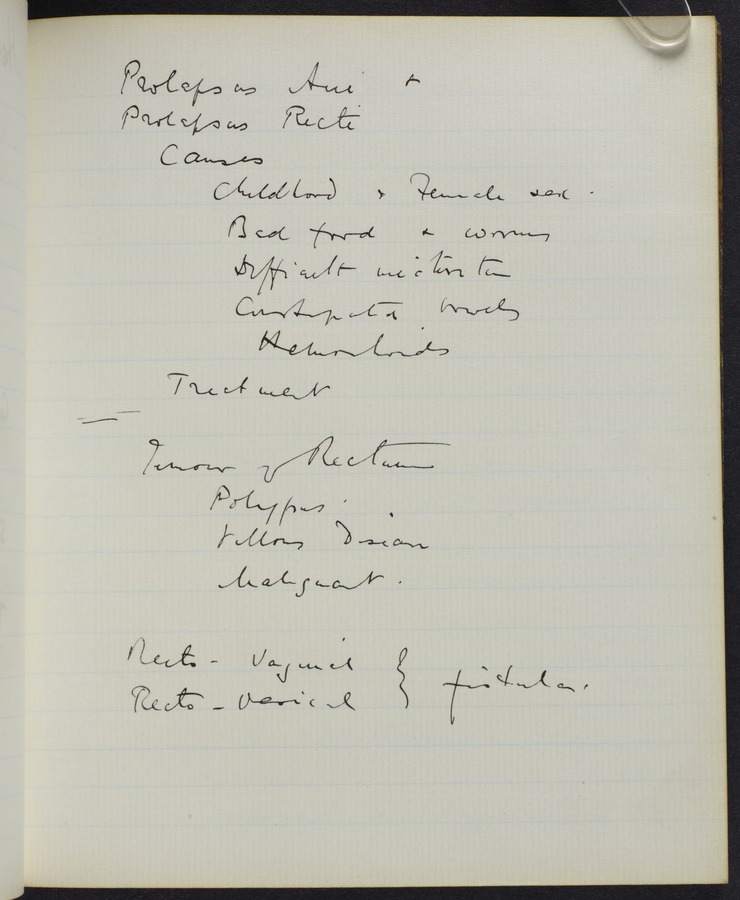 Prolapsus Ani &
Prolapsus Recti
Causes
Childhood & Female sex.
Bad food & worms
Difficult micturition
Constipated bowels
Hemorrhoids
Treatment
Tumour of Rectum
Polypus.
Villous Disease
Malignant.
Recto - Vaginal
Recto - Vesical } fistulae.